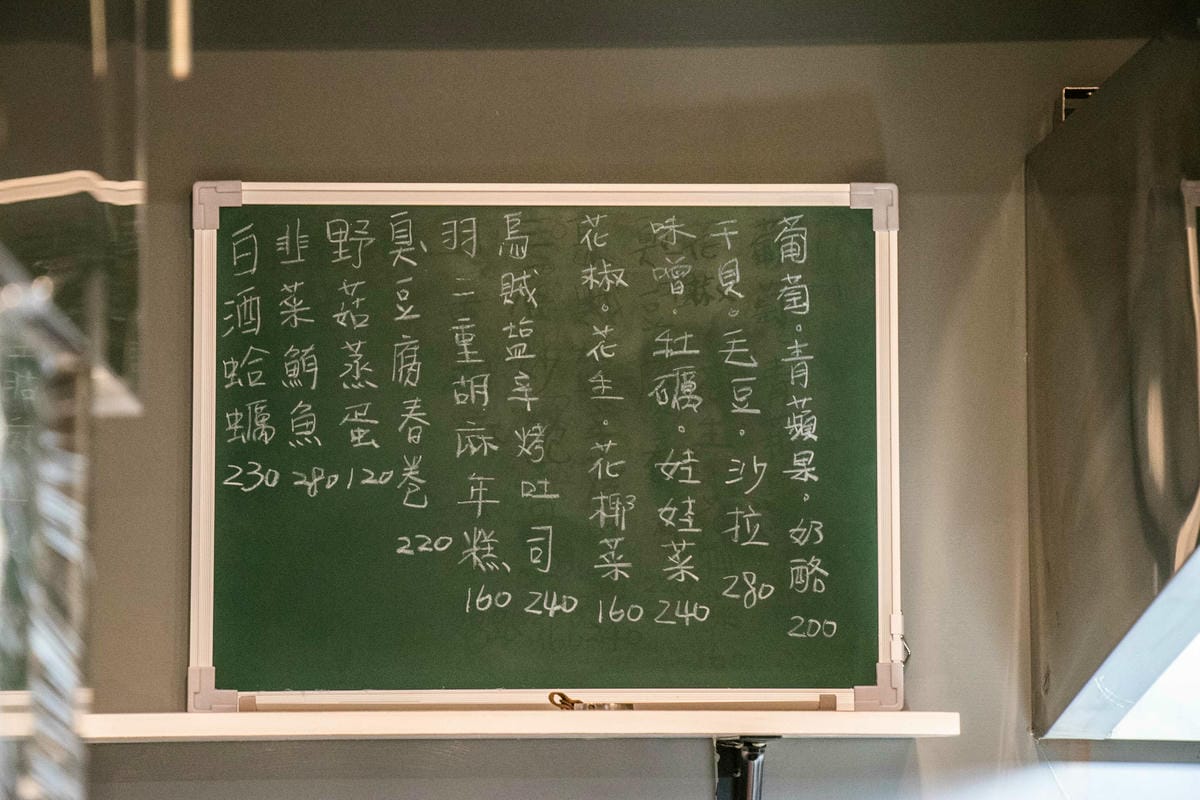 葡萄。青蘋果。奶酪 200
干貝。毛豆。沙拉 280
味噌。牡礪。娃娃菜 240
花椒。花生。花椰菜 160
烏賊塩辛烤吐司 240
羽二重胡麻年糕 160
臭豆腐春卷 220
野菇蒸蛋 120
韭菜鮪魚 280
白酒蛤蠣 230